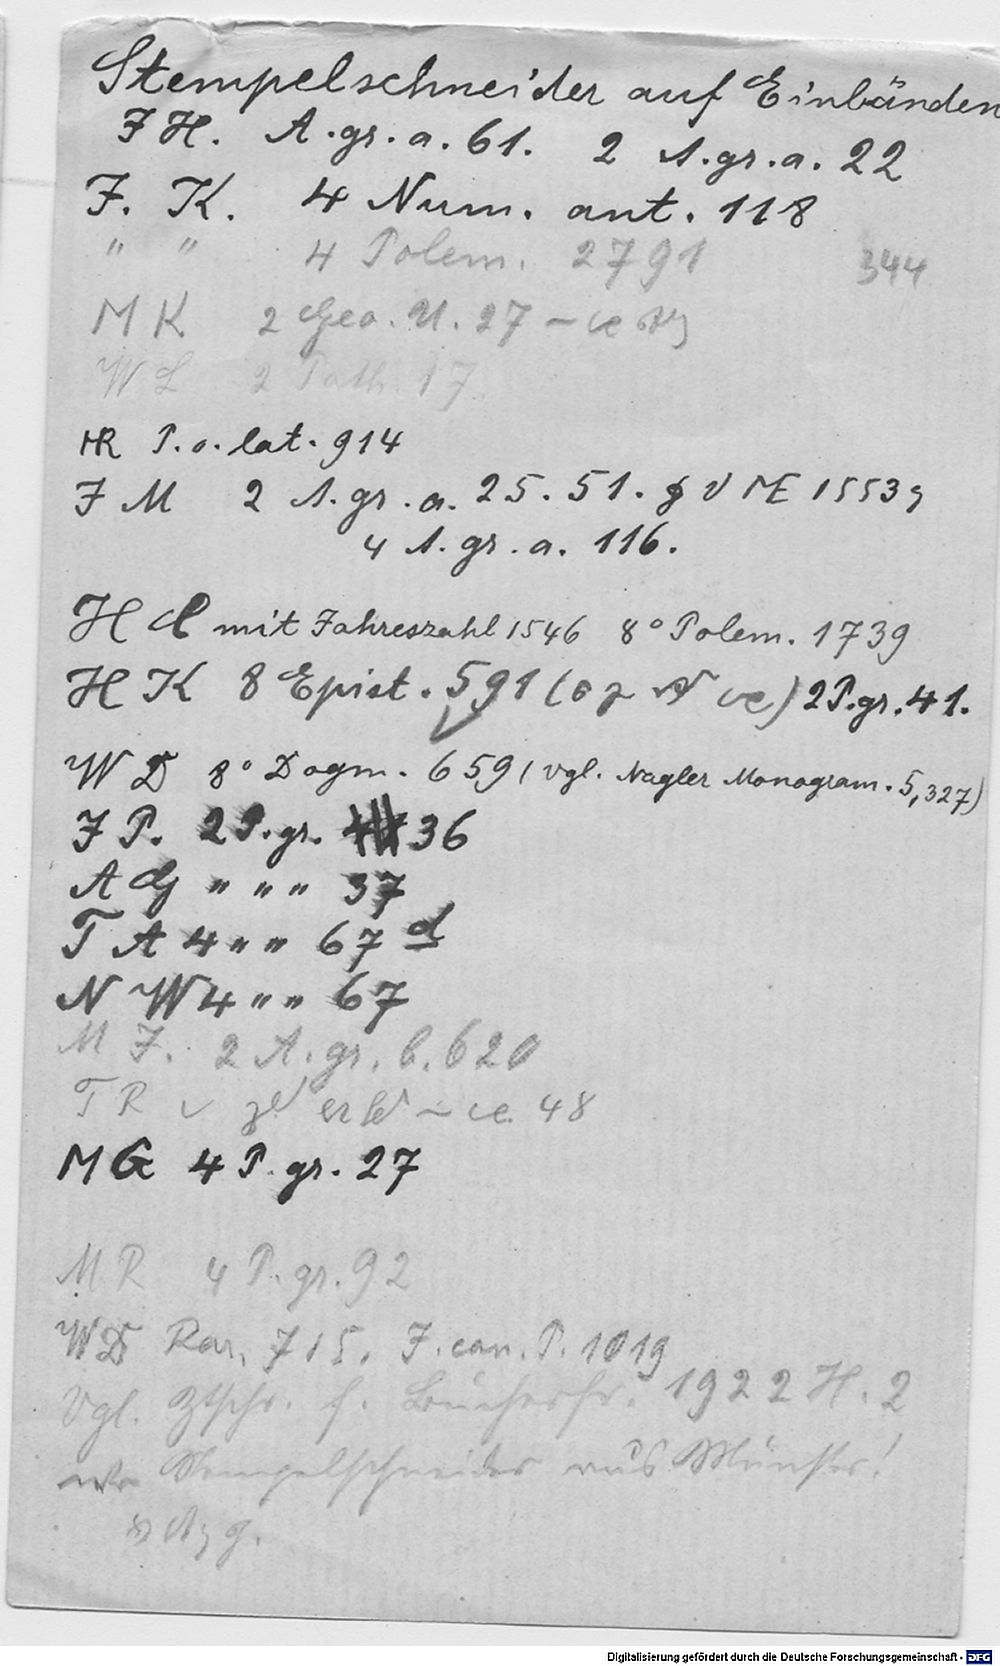 Stempelschneider auf Einbänden
J H. A.gr.a. 61. 2 A.gr.a. 22
J. K. 4 Num. ant. 118
" " 4 Polem. 2791 344
M K 2 Geo. U. 27
W L 2 Path. 17
HR P.o.lat. 914
J M 2 A.gr.a. 25. 51. 1553
4 A.gr.a. 116.
H mit Jahreszahl 1546 8° Polem. 1739
H K 8 Epist. 591 2 P.gr. 41.
W D 8° Dogm. 659 (vgl. Nagler Monogram. 5,327)
J P. 2 P.gr. 36
A G " " " 37
T A 4 " " 67 d
N W 4 " " 67
M J. 2 A.gr.b. 620
T R 48
M G 4 P.gr. 27
M R 4 P.gr. 92
W D Rar. 715. J.can.P. 1019
Vgl. Ztschr. f. Bücherfr. 1922 H. 2
Stempelschneider aus Münster!
Digitalisierung gefördert durch die Deutsche Forschungsgemeinschaft - DFG